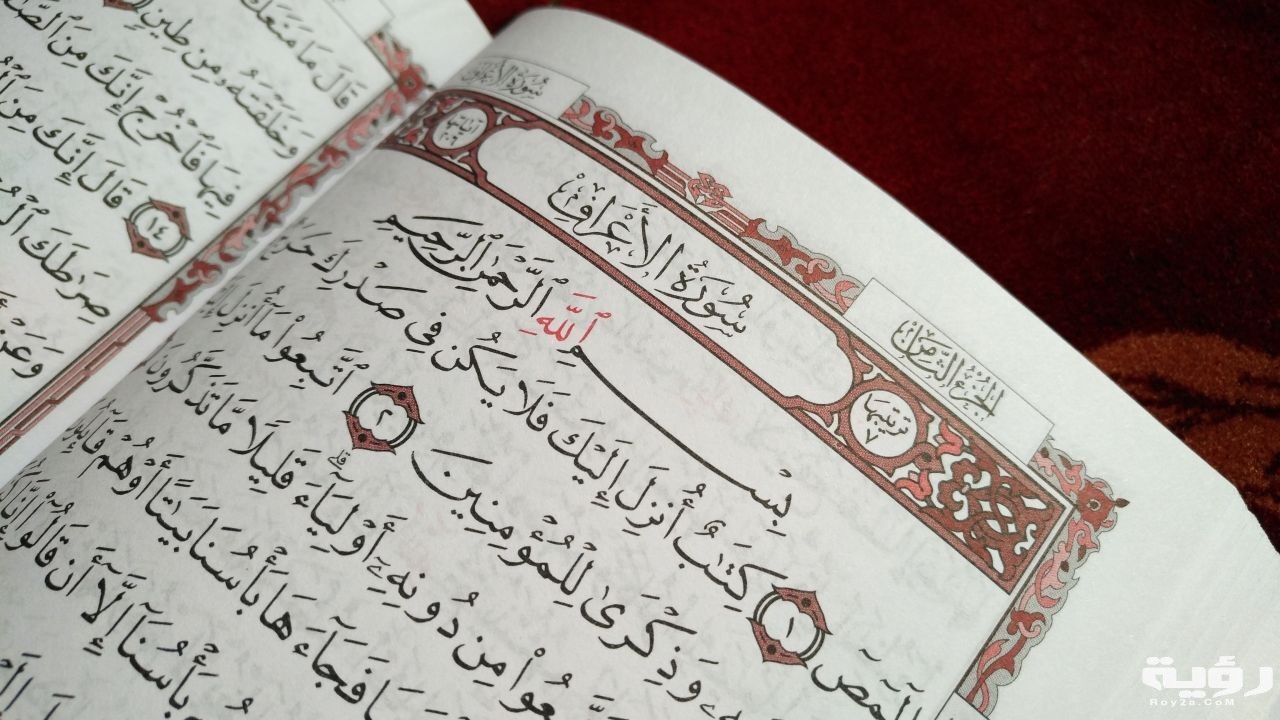 الجزء الثامن
سورة الأعراف
ترتيبها ٧
سُورَةُ الأَعْرَافِ
آياتها ٢٠٦
بِسْمِ ٱللَّهِ ٱلرَّحْمَٰنِ ٱلرَّحِيمِ
الٓمٓصٓ ١ كِتَٰبٌ أُنزِلَ إِلَيْكَ فَلَا يَكُن فِى صَدْرِكَ
وَذِكْرَىٰ لِلْمُؤْمِنِينَ ٢ ٱتَّبِعُوا۟ مَآ أُنزِلَ
مِن دُونِهِۦٓ أَوْلِيَآءَ ۗ قَلِيلًا مَّا تَذَكَّرُونَ
فَجَآءَهَا بَأْسُنَا بَيَٰتًا أَوْ هُمْ
بَأْسُنَآ إِلَّآ أَن قَالُوٓا۟ إِنَّا
قَالَ مَا مَنَعَكَ
وَخَلَقْتَهُۥ مِن طِينٍ
فِيهَا فَٱخْرُجْ إِنَّكَ مِنَ
١٤ قَالَ إِنَّكَ مِنَ
صِرَٰطَكَ
وَعَنْ
رؤية
Roy2a.CoM